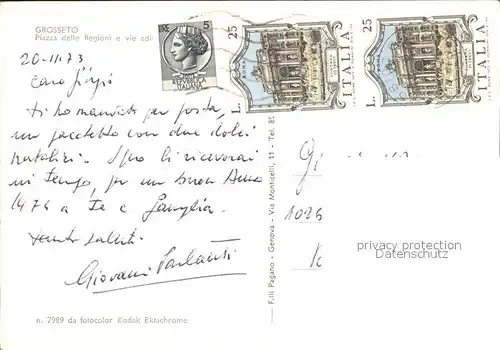 GROSSETO
Piazza delle Regioni e vie adi
20-11-73
Caro Giorgio
ti ho mandato per posta,
un pacchetto con due dolci
natalizi. Spero li riceverai
in tempo, per un buon Anno
1974 a te e famiglia.
tanti saluti.
Giovanni
n. 7989 da fotocolor Kodak Ektachrome
F.lli Pagano - Genova - Via Monticelli, 11 - Tel. 89
5
REPUBBLICA
ITALIANA
L. 25
ROMA
ITALIA
L. 25
ROMA
ITALIA
G
102
privacy protection
Datenschutz